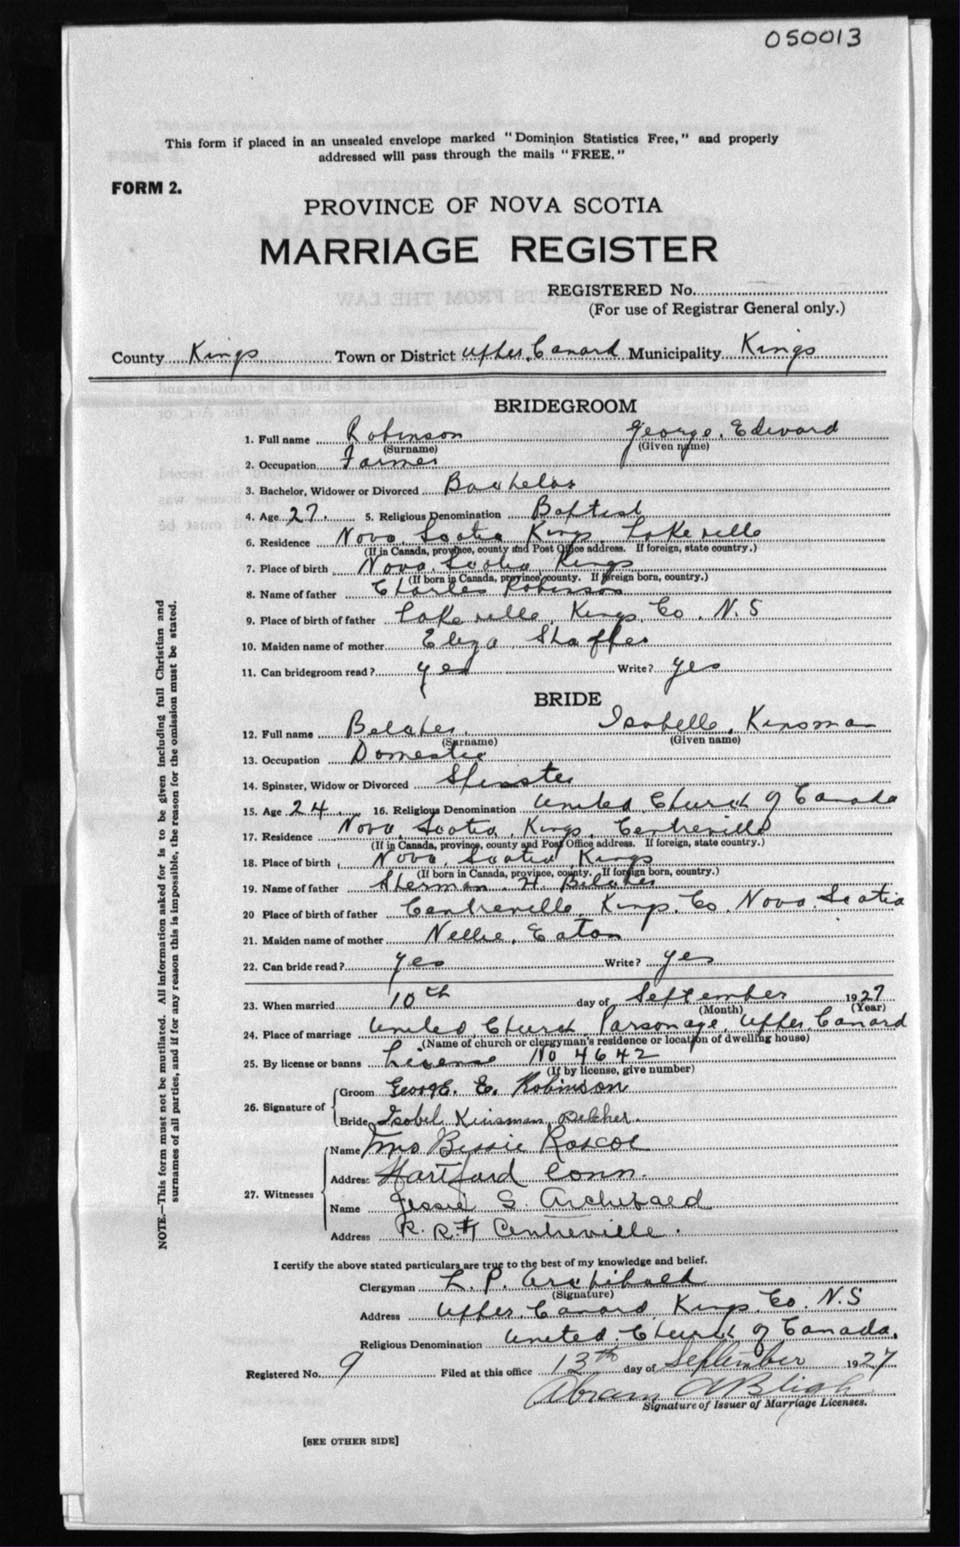 050013
This form if placed in an unsealed envelope marked "Dominion Statistics Free," and properly
addressed will pass through the mails "FREE."
FORM 2.
PROVINCE OF NOVA SCOTIA
MARRIAGE REGISTER
REGISTERED No.
(For use of Registrar General only.)
County Kings Town or District Upper Canard Municipality Kings
BRIDEGROOM
1. Full name Robinson George Edward
(Surname) (Given name)
2. Occupation Farmer
3. Bachelor, Widower or Divorced Bachelor
4. Age 27 5. Religious Denomination Baptist
6. Residence Nova Scotia Kings Lakeville
(If in Canada, province, county and Post Office address. If foreign, state country.)
7. Place of birth Nova Scotia Kings
(If born in Canada, province, county. If foreign born, country.)
8. Name of father Charles Robinson
9. Place of birth of father Lakeville Kings Co. N.S
10. Maiden name of mother Eliza Shaffer
11. Can bridegroom read? yes Write? yes
BRIDE
12. Full name Belcher Isabelle Kinsman
(Surname) (Given name)
13. Occupation Domestic
14. Spinster, Widow or Divorced Spinster
15. Age 24 16. Religious Denomination United Church of Canada
17. Residence Nova Scotia Kings Centreville
(If in Canada, province, county and Post Office address. If foreign, state country.)
18. Place of birth Nova Scotia Kings
(If born in Canada, province, county. If foreign born, country.)
19. Name of father Sherman H. Belcher
20 Place of birth of father Centreville Kings Co. Nova Scotia
21. Maiden name of mother Nellie Eaton
22. Can bride read? yes Write? yes
23. When married 10th day of September 1927
(Month) (Year)
24. Place of marriage United Church Parsonage Upper Canard
(Name of church or clergyman's residence or location of dwelling house)
25. By license or banns License No 4642
(If by license, give number)
26. Signature of Groom George E. Robinson
Bride Isobel Kinsman Belcher.
27. Witnesses
Name Mrs Bessie Roscoe
Address Hartford Conn.
Name Jessie S. Archibald
Address R.R.#1 Centreville.
I certify the above stated particulars are true to the best of my knowledge and belief.
Clergyman L. P. Archibald
(Signature)
Address Upper Canard Kings Co. N.S
Religious Denomination United Church of Canada.
Registered No. 9 Filed at this office 13th day of September 1927
Abram A Bligh
Signature of Issuer of Marriage Licenses.
[SEE OTHER SIDE]
NOTE.—This form must not be mutilated. All information asked for is to be given including full Christian and
surnames of all parties, and if for any reason this is impossible, the reason for the omission must be stated.